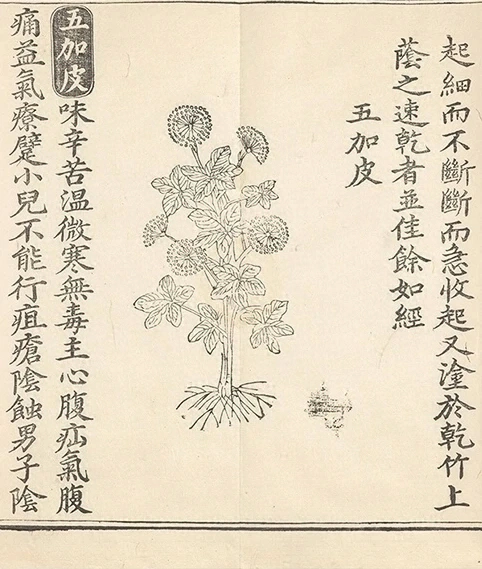 起細而不斷斷而急收起又塗於乾竹上
蔭之速乾者並佳餘如經
五加皮
五加皮味辛苦温微寒無毒主心腹疝氣腹
痛益氣療躄小兒不能行疽瘡陰蝕男子陰